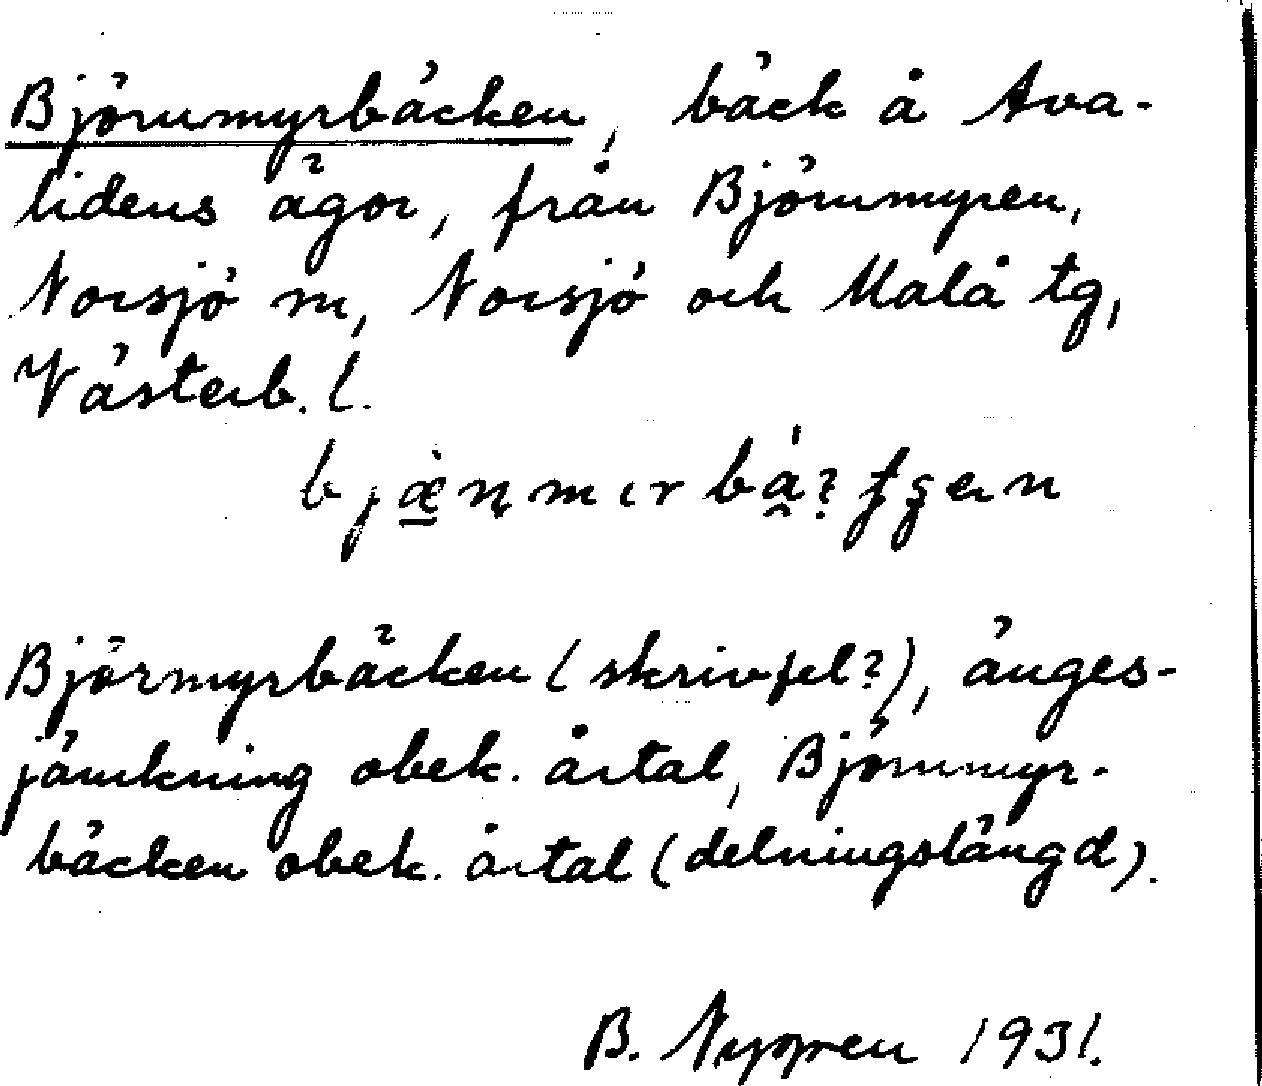 Björnmyrbäcken, bäck å Ava-
lidens ägor, från Björnmyren,
Norsjö sn, Norsjö och Malå tg,
Västerb. l.
Björmyrbäcken (skrivfel?), änges-
jämkning obek. årtal, Björnmyr-
bäcken obek. årtal (delningslängd).
B. Nygren 1931.